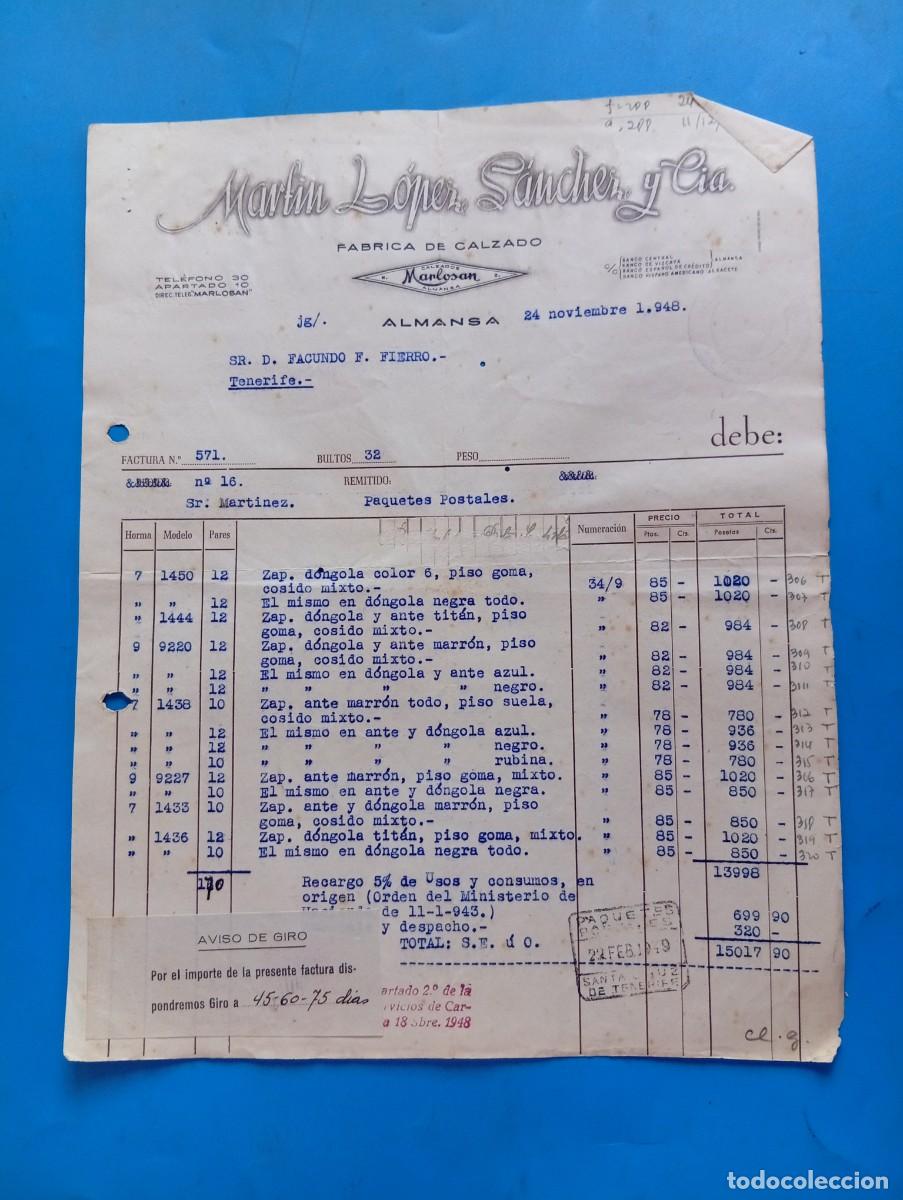 Martin López, Sánchez, y Cia.
FABRICA DE CALZADO
CALZADOS
Marlosan
ALMANSA
TELÉFONO 30
APARTADO 10
DIREC. TELEG. "MARLOSAN"
C/C BANCO CENTRAL
BANCO DE VIZCAYA
BANCO ESPAÑOL DE CRÉDITO
ALMANSA
BANCO HISPANO AMERICANO ALBACETE
11/12
jg/. ALMANSA 24 noviembre 1.948.
SR. D. FACUNDO F. FIERRO.-
Tenerife.-
debe:
FACTURA N.º 571. BULTOS 32 PESO
nº 16. REMITIDO:
Sr. Martinez. Paquetes Postales.
Horma Modelo Pares Numeración PRECIO TOTAL
Ptas. Cts. Pesetas Cts.
7 1450 12 Zap. dóngola color 6, piso goma,
cosido mixto.- 34/9 85 - 1020 - 306 T
" " 12 El mismo en dóngola negra todo. " 85 - 1020 - 307 T
" 1444 12 Zap. dóngola y ante titán, piso
goma, cosido mixto.- " 82 - 984 - 308 T
9 9220 12 Zap. dóngola y ante marrón, piso
goma, cosido mixto.- " 82 - 984 - 309 T
" " 12 El mismo en dóngola y ante azul. " 82 - 984 - 310 T
" " 12 " " " " negro. " 82 - 984 - 311 T
7 1438 10 Zap. ante marrón todo, piso suela,
cosido mixto.- " 78 - 780 - 312 T
" " 12 El mismo en ante y dóngola azul. " 78 - 936 - 313 T
" " 12 " " " " negro. " 78 - 936 - 314 T
" " 10 " " " " rubina. " 78 - 780 - 315 T
9 9227 12 Zap. ante marrón, piso goma, mixto. " 85 - 1020 - 316 T
" " 10 El mismo en ante y dóngola negra. " 85 - 850 - 317 T
7 1433 10 Zap. ante y dóngola marrón, piso
goma, cosido mixto.- " 85 - 850 - 318 T
" 1436 12 Zap. dóngola titán, piso goma, mixto. " 85 - 1020 - 319 T
" " 10 El mismo en dóngola negra todo. " 85 - 850 - 320 T
170 13998
Recargo 5% de Usos y consumos, en
origen (Orden del Ministerio de
de 11-1-943.) 699 90
y despacho. 320 -
TOTAL: S.E. ú O. 15017 90
AVISO DE GIRO
Por el importe de la presente factura dis-
pondremos Giro a 45-60-75 dias
artado 2.º de la
rvicios de Car-
a 18 Sbre. 1948
PAQUETES
22 FEB. 1949
SANTA CRUZ
DE TENERIFE
cl. g.
todocoleccion